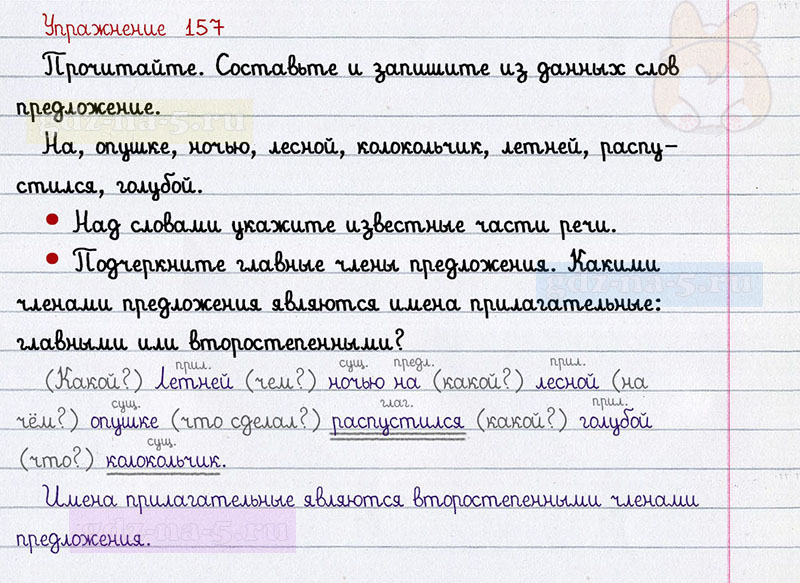 Упражнение 157
Прочитайте. Составьте и запишите из данных слов
предложение.
gdz-na-5.ru
На, опушке, ночью, лесной, колокольчик, летней, распу-
стился, голубой.
• Над словами укажите известные части речи.
• Подчеркните главные члены предложения. Какими
gdz-na-5.ru
членами предложения являются имена прилагательные:
главными или второстепенными?
прил. сущ. предл. прил.
(Какой?) Летней (чем?) ночью на (какой?) лесной (на
сущ. глаг. прил.
чём?) опушке (что сделал?) распустился (какой?) голубой
сущ.
(что?) колокольчик.
Имена прилагательные являются второстепенными членами
gdz-na-5.ru
предложения.